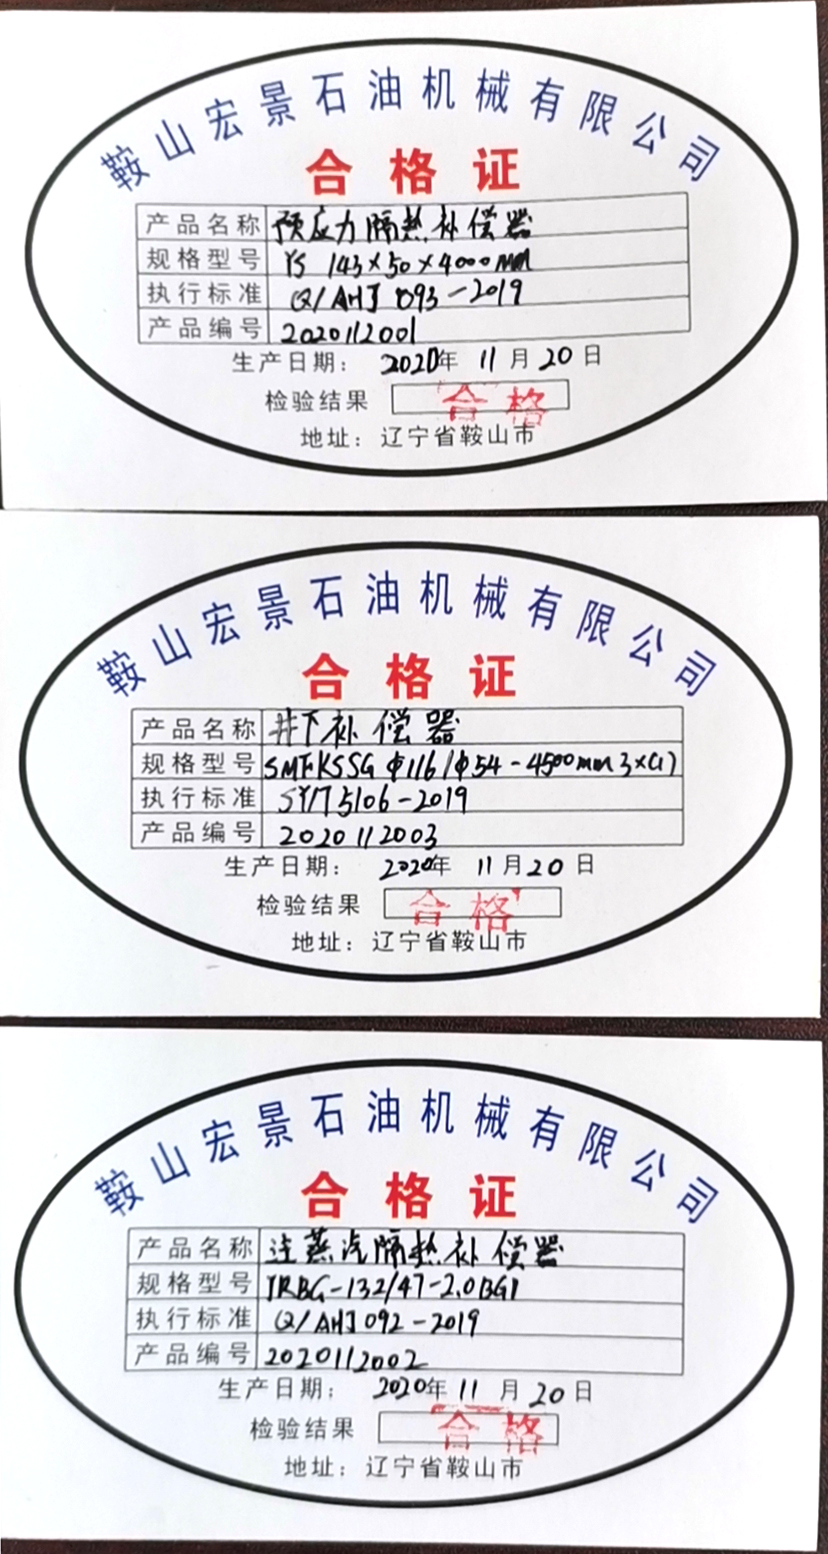 鞍山宏景石油机械有限公司
合格证
产品名称 预应力隔热补偿器
规格型号 YS 143×50×4000mm
执行标准 Q/AHJ 093-2019
产品编号 2020112001
生产日期: 2020年 11月20日
检验结果 合格
地址:辽宁省鞍山市
鞍山宏景石油机械有限公司
合格证
产品名称 井下补偿器
规格型号 SMFKSSG Φ116/Φ54-4500mm
执行标准 SY/T 5106-2019
产品编号 2020112003
生产日期: 2020年 11月20日
检验结果 合格
地址:辽宁省鞍山市
鞍山宏景石油机械有限公司
合格证
产品名称 蒸汽隔热补偿器
规格型号 JRBG-132/47-2.0BG1
执行标准 Q/AHJ 092-2019
产品编号 2020112002
生产日期: 2020年 11月20日
检验结果 合格
地址:辽宁省鞍山市